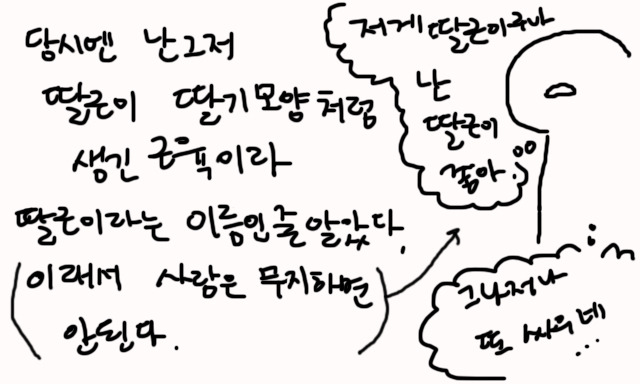 당시엔 난 그저
딸근이 딸기모양처럼
생긴 근육이라
딸근이라는 이름인줄 알았다.
(이래서 사람은 무지하면
안된다.)
저게 딸근이구나
난
딸근이
좋아.
그나저나
또 싸우네
...